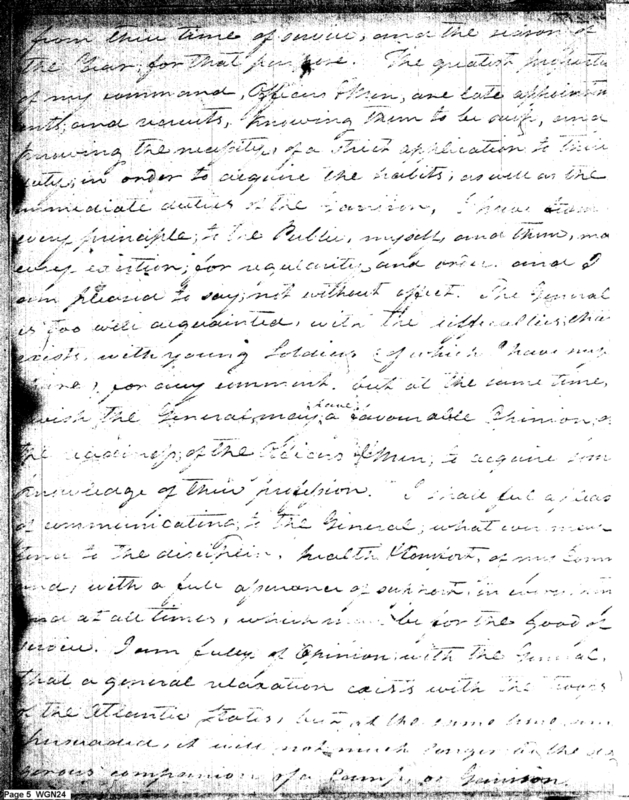 from their time of service, and the season of
the Year, for that purpose. The greatest
of my command, Officers & Men, are late appointm
ents, and recruits, knowing them to be such, and
knowing the necessity, of a strict application to their
duty, in order to acquire the habits, as well as the
immediate duties of the Garrison, I have from
every principle, to the Public, myself, and them, ma
every exertion, for regularity, and order. and I
am pleased to say, not without effect. The General
is too well acquainted, with the difficulties, tha
exists, with young Soldiers (of which I have my
share) for any comment, but at the same time,
I wish, the General, may have a favourable Opinion, o
the readiness, of the Officers & Men, to acquire som
knowledge of their profession. I shall feel a pleas
of communicating, to the General, what ever
tend to the discipline, health & Comfort, of my Comm
and, with a full assurance of support, in
and at all times, which be for the Good of
service. I am fully of Opinion, with the General,
that a general relaxation exists with the troops
of the Atlantic States, but, at the same time, am
persuaded, it will not much longer be the
companion of a Camp, or Garrison.
Page 5 WGN24